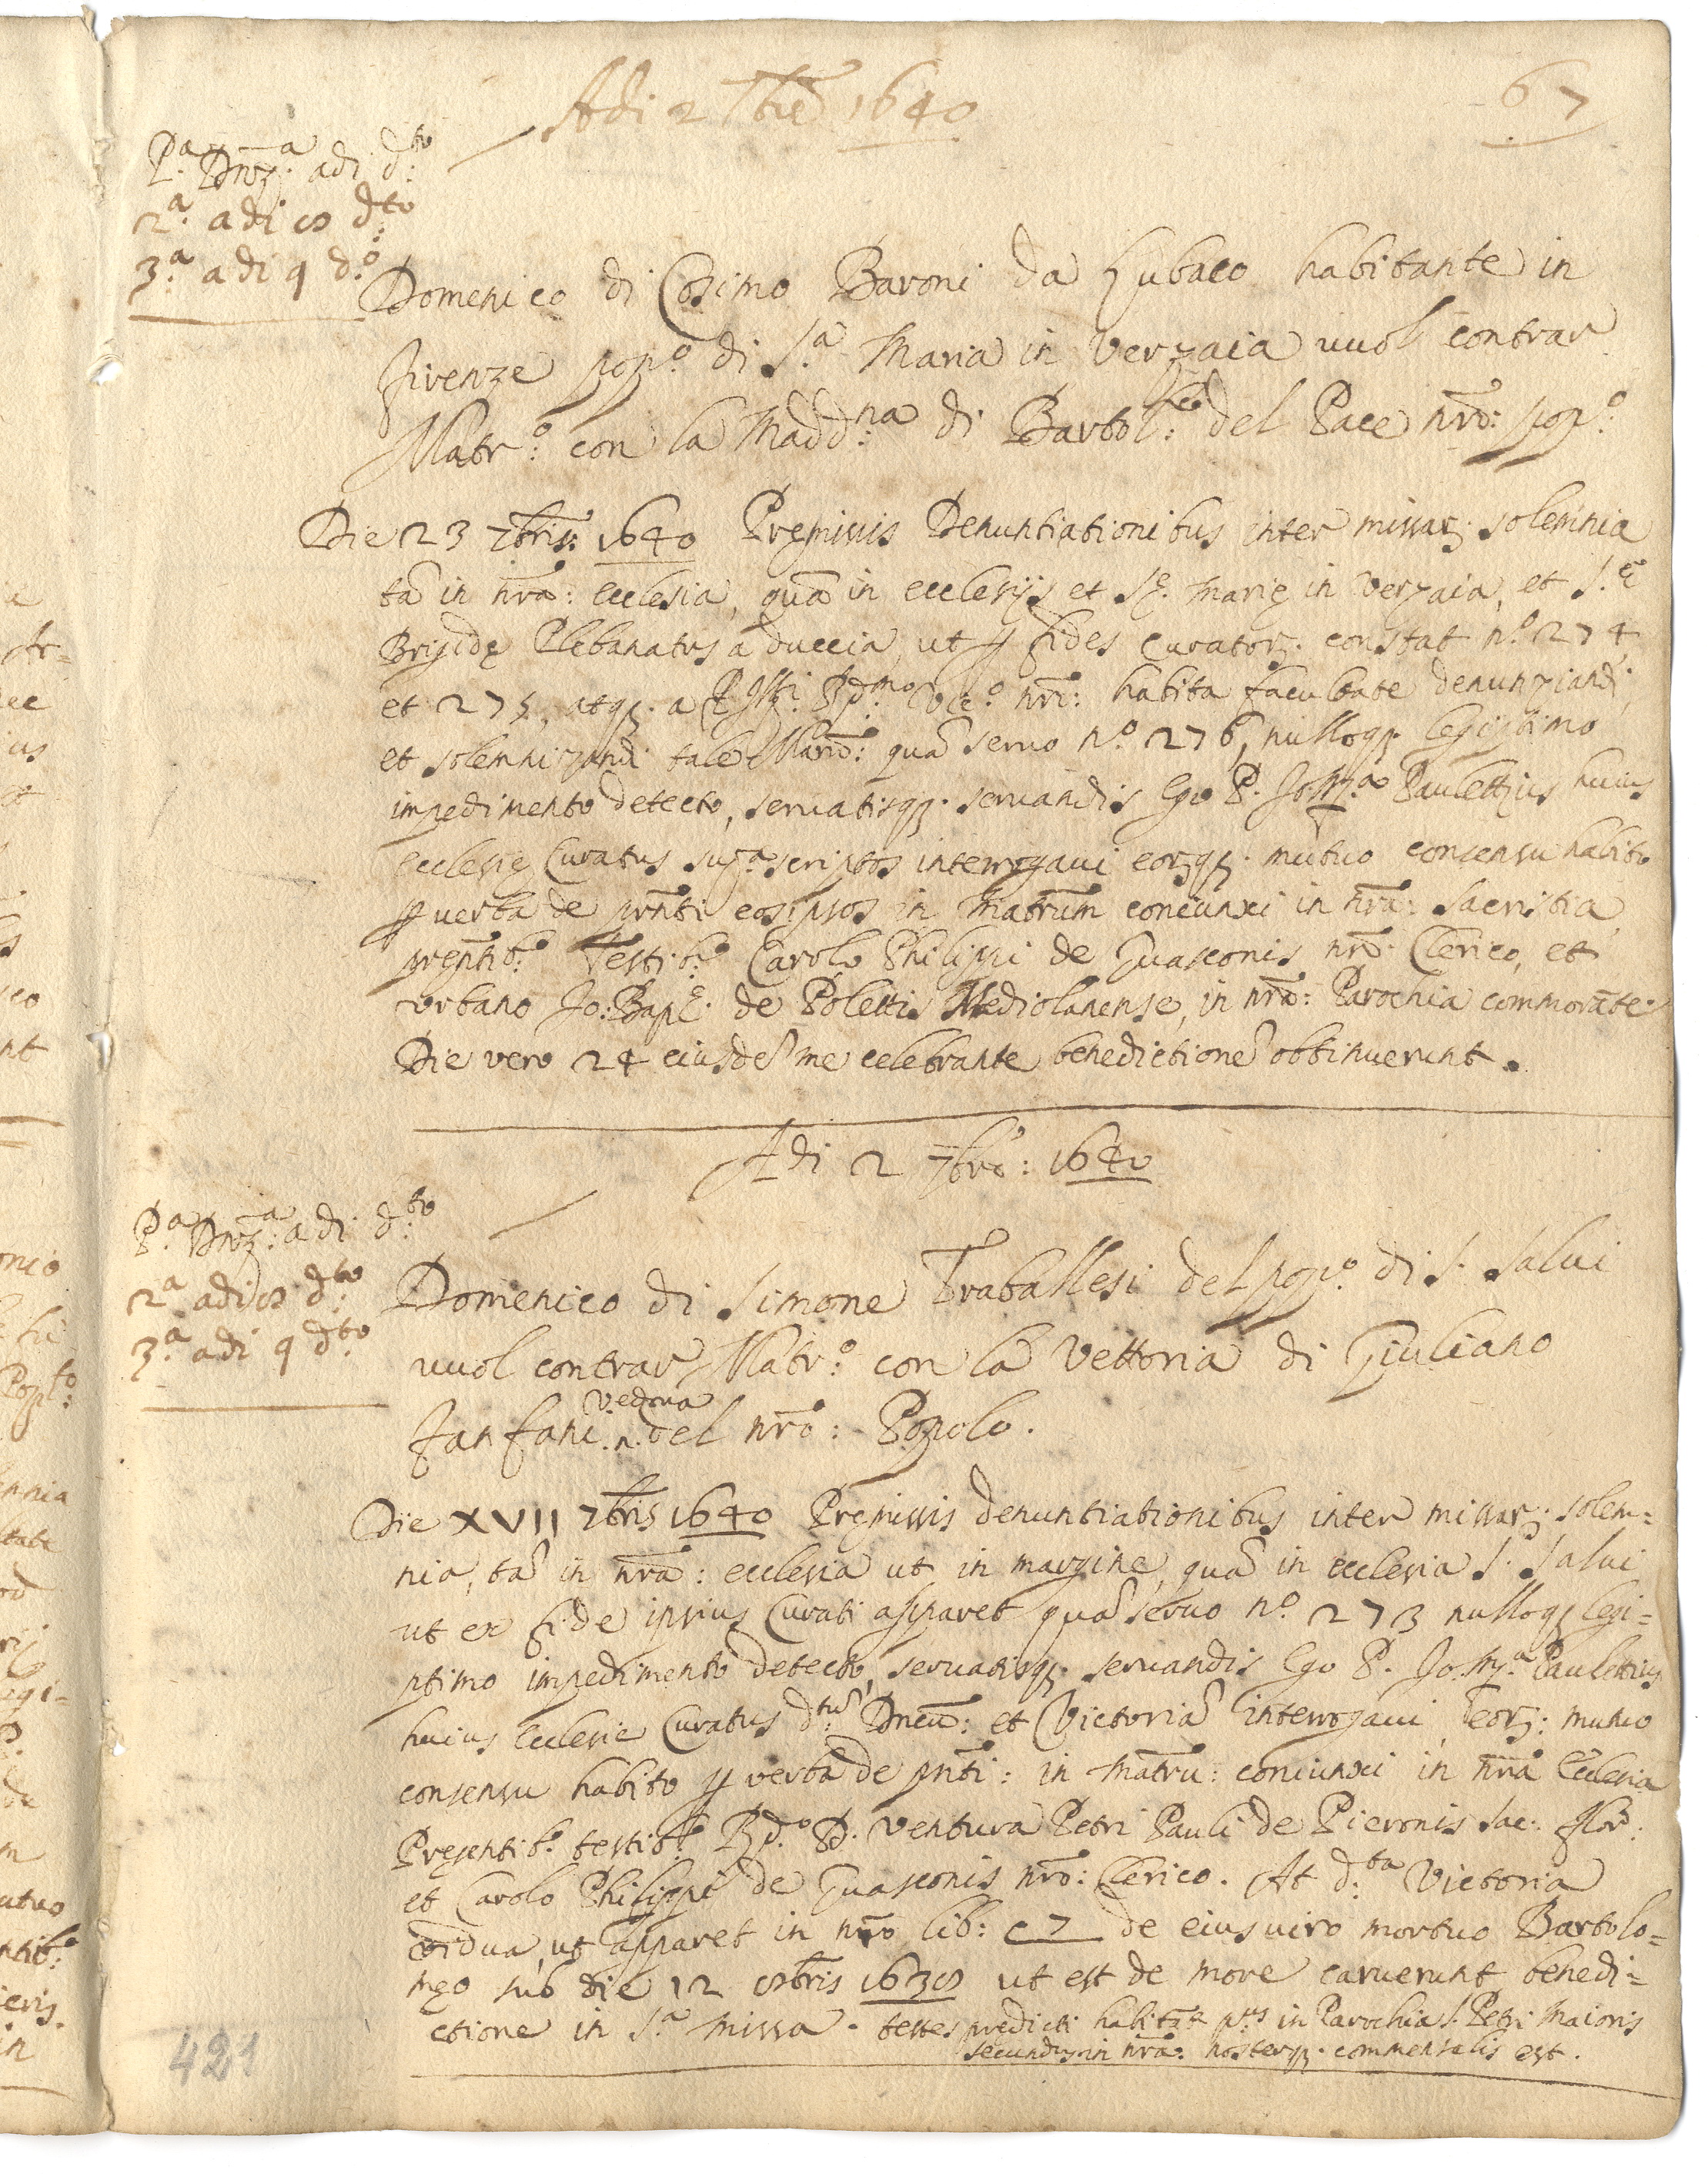 67
Adi 2 7bre 1640
P.a Dnz.a adi d.to
2.a adi 8 d.to
3.a adi 9 d.o
Domenico di Cosimo Baroni da Lubaco habitante in
firenze pop.o di S.a Maria in Verzaia vuol contrar
Matr.o con la Madd.na di Bartol.eo del Pace nro: pop.o
Die 23 7bris: 1640 Premissis Denuntiationibus inter missar. solemnia
tā in nrā: ecclesia, quā in ecclesijs et Se. Marie in Verzaia, et S.e
Brigide Plebanatus a Duccia, ut p fides curator. constat n.o 274
et 275, atq. a R.mo Vic.o nri: habita facultate denunziandi
et solemnizandi tale Mano: quā servo n.o 276, nulloq. legiptimo
impedimento detecto, servatisq. servandis Ego P. Jo: M.a Paulettius huius
Ecclesie Curatus sup.ascriptos interrogavi eorq. mutuo consensu habito
p verba de prnti eos ipsos in Matrum coniunxi in nra: Sacristia
presntib. Testib. Carolo Philippi de Guasconis nro. Clerico, et
Urbano Jo: Bapt. de Poletti Mediolanense, in nra: Parochia commorāte.
Die vero 24 eiusdē me celebrante benedictionē obtinuerunt.
Adi 2 7bre: 1640
P.a Dnz.a adi d.to
2.a adi 8 d.to
3.a adi 9 d.to
Domenico di Simone Traballesi del pop.o di S. Salvi
vuol contrar Matr.o con la Vettoria di Giuliano
Fanfani vedova del nro: Popolo.
Die XVII 7bris 1640 Premissis denuntiationibus inter missar. solem=
nia, tā in nra: ecclesia ut in margine, quā in ecclesia S. Salvi
ut ex fide ipsius Curati apparet quā servo n.o 273 nulloq legi=
ptimo impedimento detecto, servatisq. servandis Ego P. Jo: M.a Paulettius
huius Ecclesie Curatus d.tū Dncū: et Victoriā interrogavi, eor: mutuo
consensu habito p verba de pnti: in Matru: coniunxi in nra Ecclesia
Presentib. testib. R.do D. Ventura Petri Pauli de Pieronis Sac. flor.
et Carolo Philippi de Guasconis nro: Clerico. At d.ta Victoria
vidua, ut apparet in nro lib: c 7 de eius viro mortuo Bartolo=
meo sub die 12 8bris 1638 ut est de more caruerunt benedi=
ctione in S.a Missa. testes predicti habitāt p.us in Parochia S. Petri Maioris
secundus in nra: nosterq. commensalis est.
421